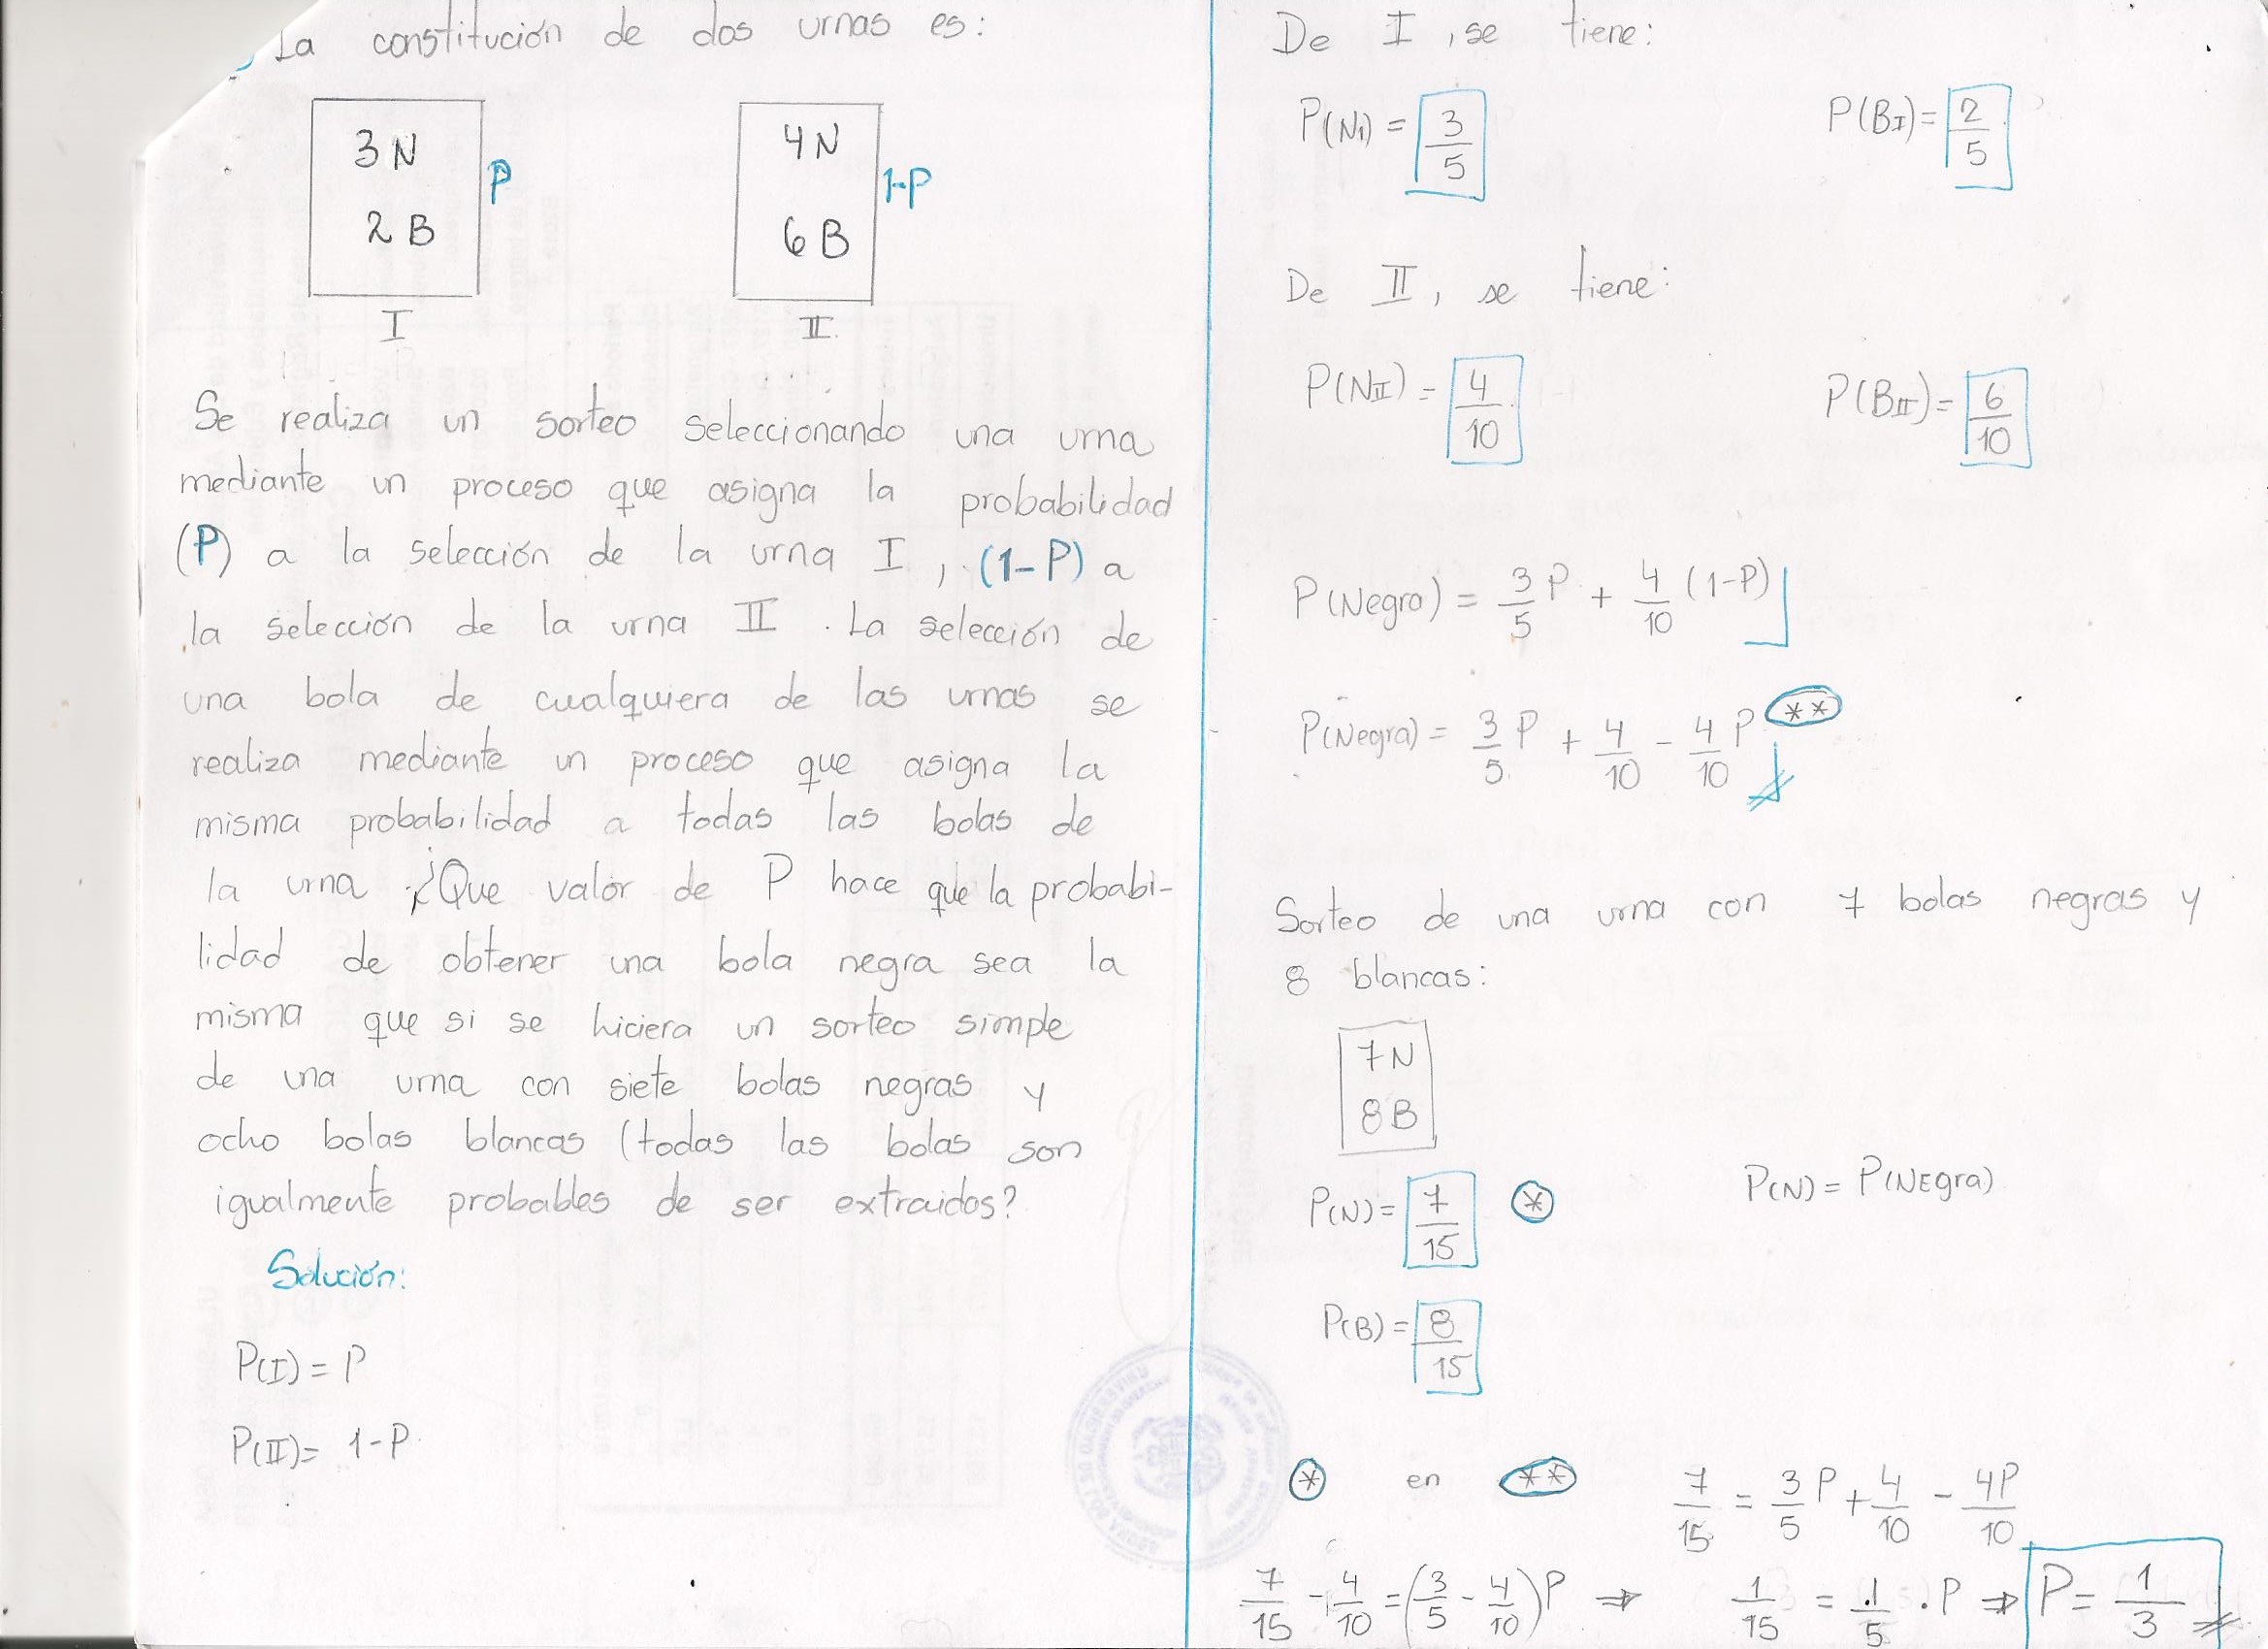 La constitución de dos urnas es:
3 N
2 B
P
I
4 N
6 B
1-P
II
Se realiza un sorteo seleccionando una urna
mediante un proceso que asigna la probabilidad
(P) a la selección de la urna I, (1-P) a
la selección de la urna II. La selección de
una bola de cualquiera de las urnas se
realiza mediante un proceso que asigna la
misma probabilidad a todas las bolas de
la urna ¿Que valor de P hace que la probabi-
lidad de obtener una bola negra sea la
misma que si se hiciera un sorteo simple
de una urna con siete bolas negras y
ocho bolas blancas (todas las bolas son
igualmente probables de ser extraidos?
Solución:
P(I) = P
P(II) = 1-P
De I, se tiene:
P(N1) = 3/5 P(BI) = 2/5
De II, se tiene:
P(NII) = 4/10 P(BII) = 6/10
P(Negra) = 3/5 P + 4/10 (1-P)
P(Negra) = 3/5 P + 4/10 - 4/10 P **
Sorteo de una urna con 7 bolas negras y
8 blancas:
7 N
8 B
P(N) = 7/15 * P(N) = P(NEgra)
P(B) = 8/15
* en ** 7/15 = 3/5 P + 4/10 - 4P/10
7/15 - 4/10 = (3/5 - 4/10) P ⇒ 1/15 = 1/5 . P ⇒ P = 1/3